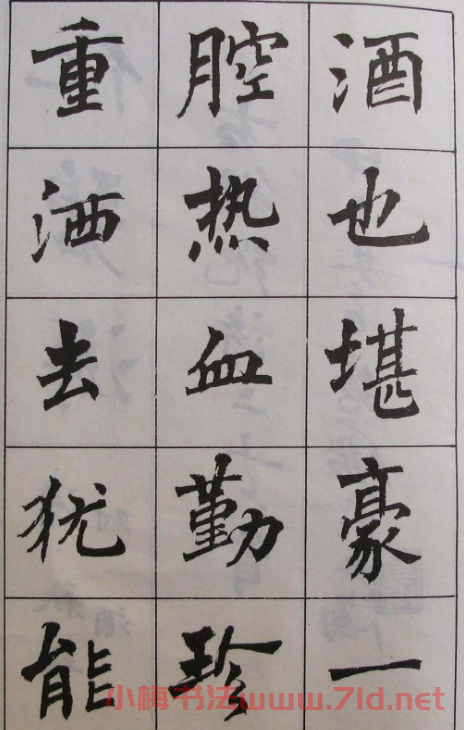 酒也堪豪一
腔热血勤珍
重洒去犹能
小梅书法www.7ld.net